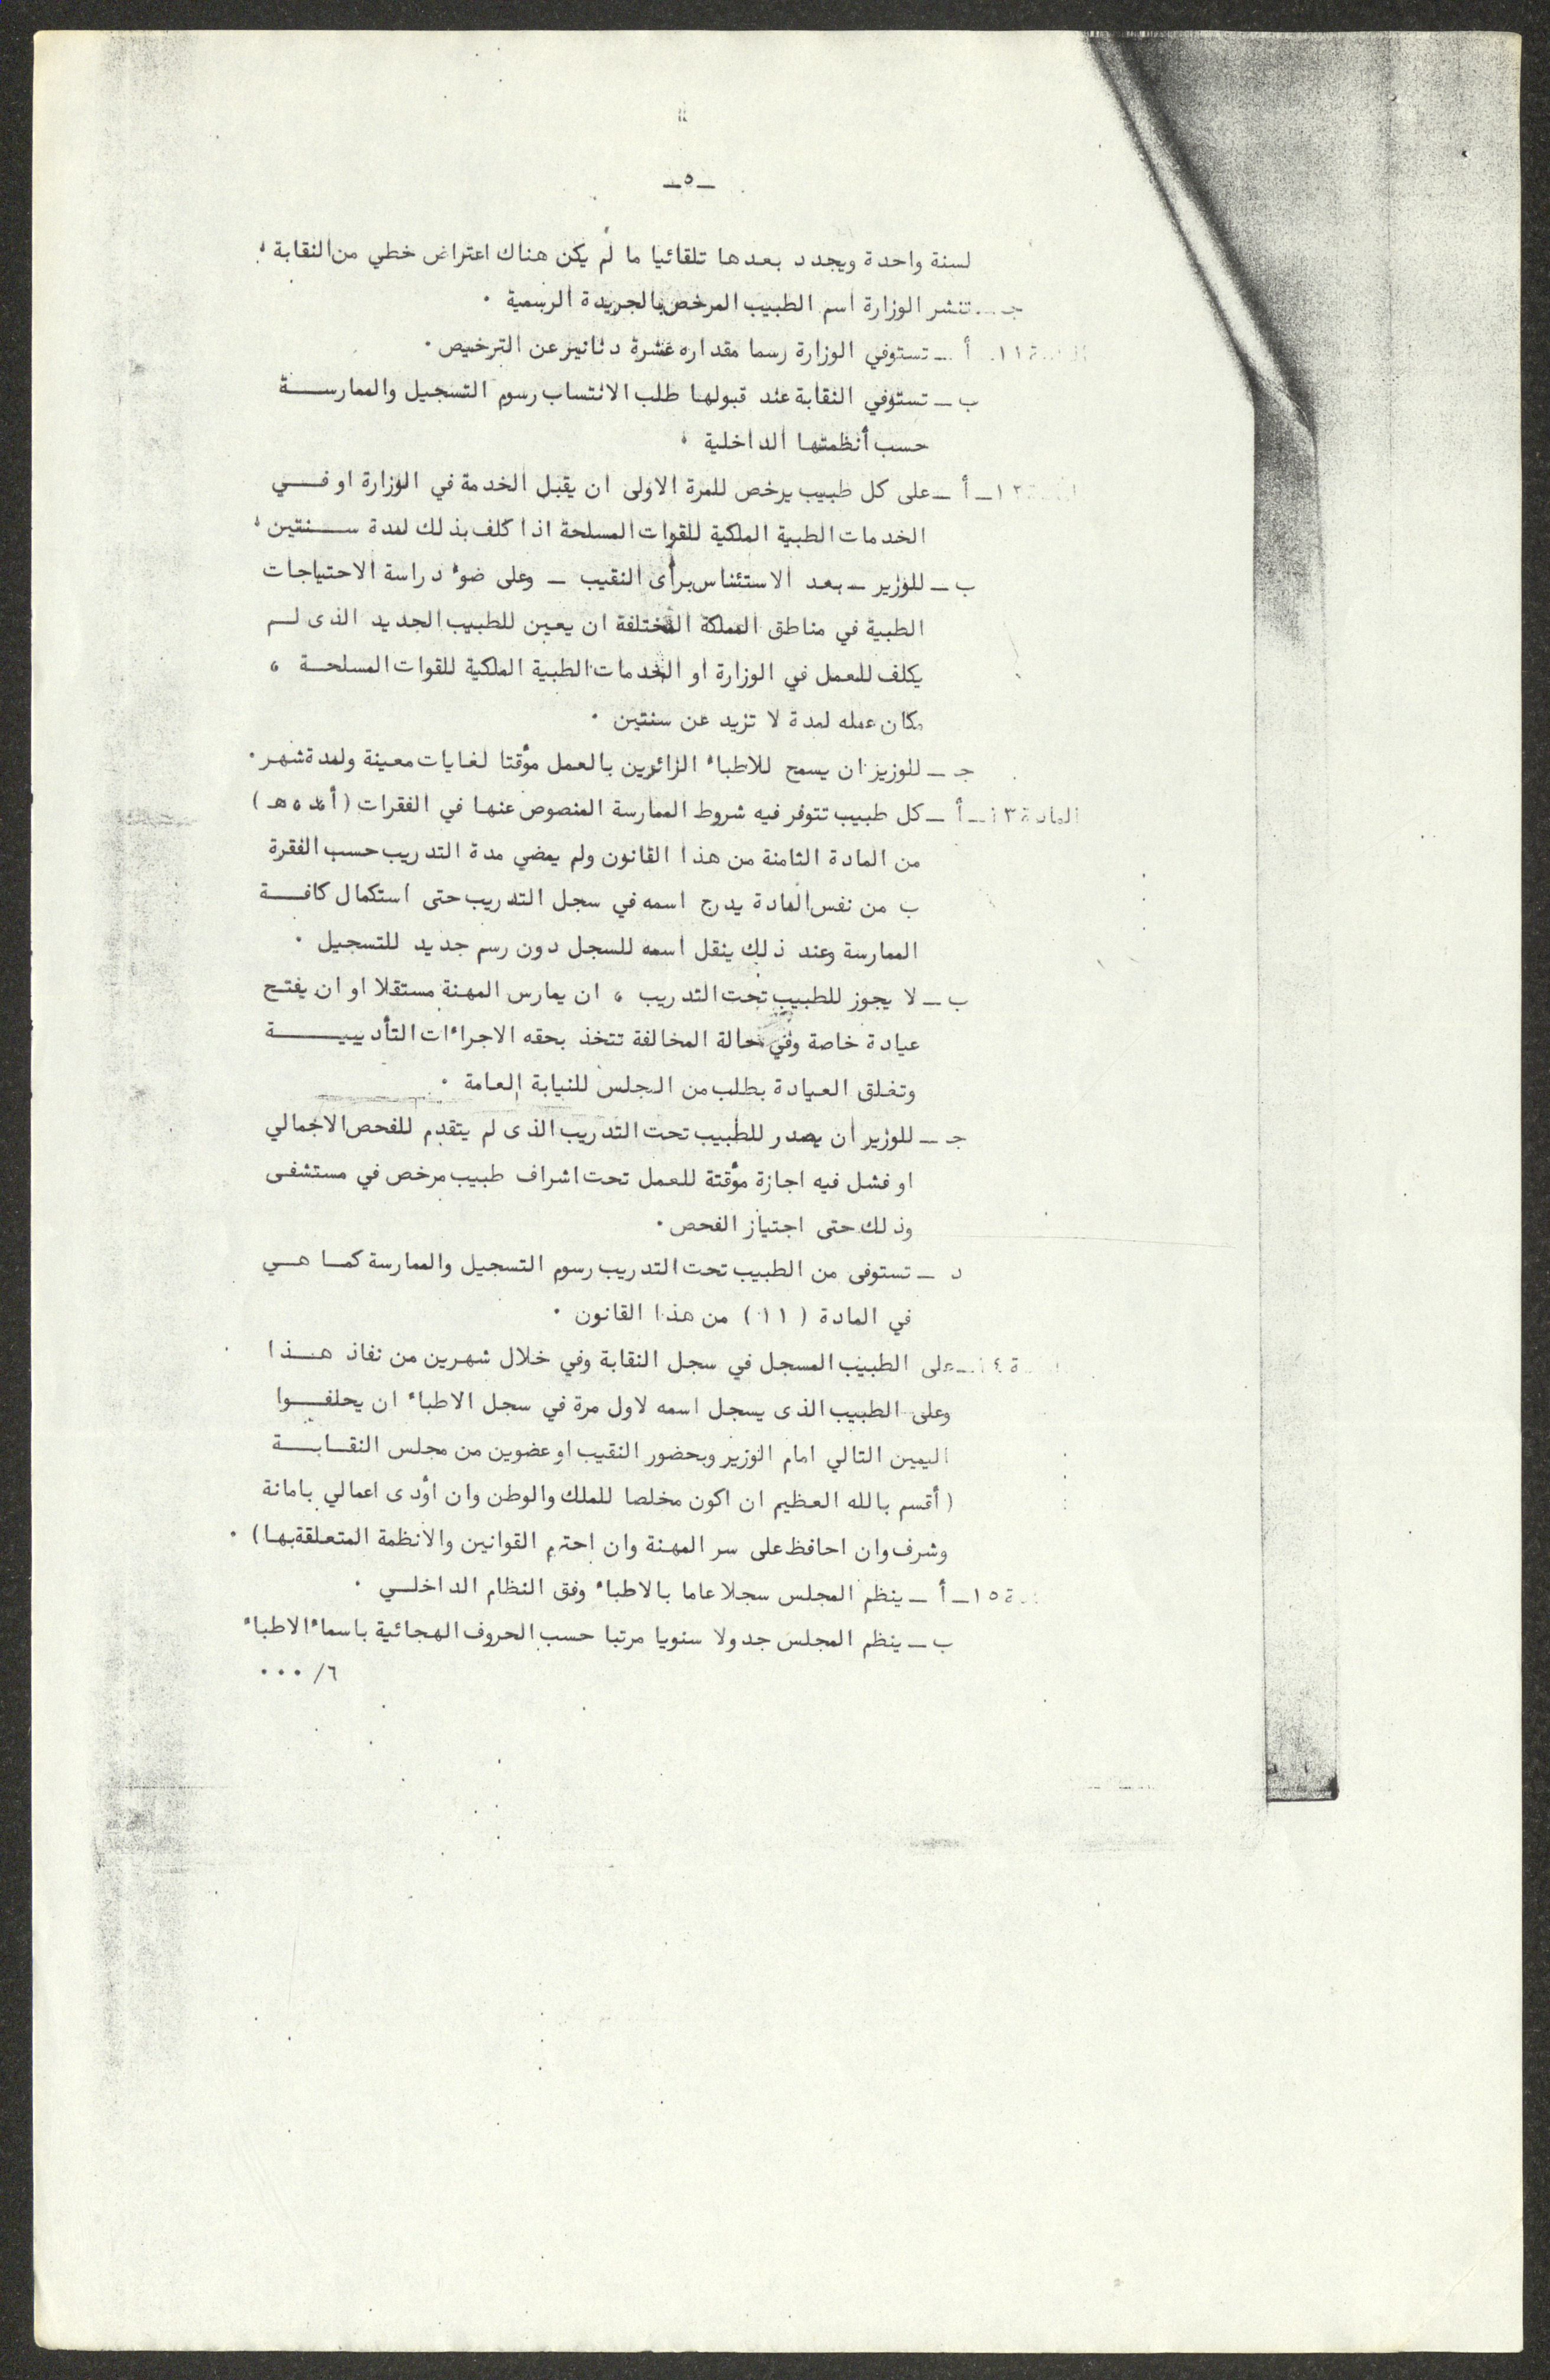 ـ ٥ ـ
لسنة واحدة ويجدد بعدها تلقائيا ما لم يكن هناك اعتراض خطي من النقابة ،
جـ ـ تنشر الوزارة اسم الطبيب المرخص بالجريدة الرسمية .
١١ أ ـ تستوفي الوزارة رسما مقداره عشرة دنانير عن الترخيص .
ب ـ تستوفي النقابة عند قبولها طلب الانتساب رسوم التسجيل والممارســـة
حسب أنظمتها الداخلية ،
١٢ ـ أ ـ على كل طبيب يرخص للمرة الاولى ان يقبل الخدمة في الوزارة او فـــي
الخدمات الطبية الملكية للقوات المسلحة اذا كلف بذلك لمدة ســـنتين ،
ب ـ للوزير ـ بعد الاستئناس برأى النقيب ـ وعلى ضوء دراسة الاحتياجات
الطبية في مناطق المملكة المختلفة ان يعين للطبيب الجديد الذى لــم
يكلف للعمل في الوزارة او الخدمات الطبية الملكية للقوات المسلحــة ،
مكان عمله لمدة لا تزيد عن سنتين .
جـ ـ للوزير ان يسمح للاطباء الزائرين بالعمل مؤقتا لغايات معينة ولمدة شهر .
المادة ١٣ ـ أ ـ كل طبيب تتوفر فيه شروط الممارسة المنصوص عنها في الفقرات
من المادة الثامنة من هذا القانون ولم يمضي مدة التدريب حسب الفقرة
ب من نفس المادة يدرج اسمه في سجل التدريب حتى استكمال كافــة
الممارسة وعند ذلك ينقل اسمه للسجل دون رسم جديد للتسجيل .
ب ـ لا يجوز للطبيب تحت التدريب ، ان يمارس المهنة مستقلا او ان يفتـح
عيادة خاصة وفي حالة المخالفة تتخذ بحقه الاجراءات التأديبيـــــة
وتغلق العيادة بطلب من المجلس للنيابة العامة .
جـ ـ للوزير ان يصدر للطبيب تحت التدريب الذى لم يتقدم للفحص الاجمالي
او فشل فيه اجازة مؤقتة للعمل تحت اشراف طبيب مرخص في مستشفـى
وذلك حتى اجتياز الفحص .
د ـ تستوفى من الطبيب تحت التدريب رسوم التسجيل والممارسة كمـا هــي
في المادة ( ١١ ) من هذا القانون .
ة ١٤ ـ على الطبيب المسجل في سجل النقابة وفي خلال شهرين من نفاذ هــذا
وعلى الطبيب الذى يسجل اسمه لاول مرة في سجل الاطباء ان يحلفــوا
اليمين التالي امام الوزير وبحضور النقيب او عضوين من مجلس النقـابــة
( أقسم بالله العظيم ان اكون مخلصا للملك والوطن وان اؤدى اعمالي بامانة
وشرف وان احافظ على سر المهنة وان احترم القوانين والانظمة المتعلقة بها ) .
ة ١٥ ـ أ ـ ينظم المجلس سجلا عاما بالاطباء وفق النظام الداخلـي .
ب ـ ينظم المجلس جدولا سنويا مرتبا حسب الحروف الهجائية باسماء الاطباء
٦/ ...